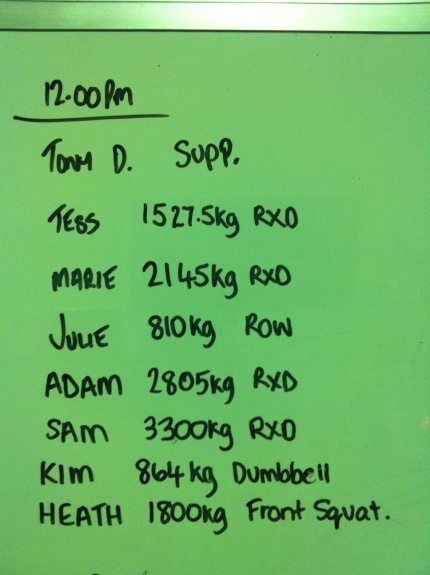 12.00Pm
Tony D. Supp.
TESS 1527.5kg RXD
MARIE 2145kg RXD
JULIE 810kg ROW
ADAM 2805kg RXD
SAM 3300kg RXD
KIM 864kg Dumbbell
HEATH 1800kg Front Squat.